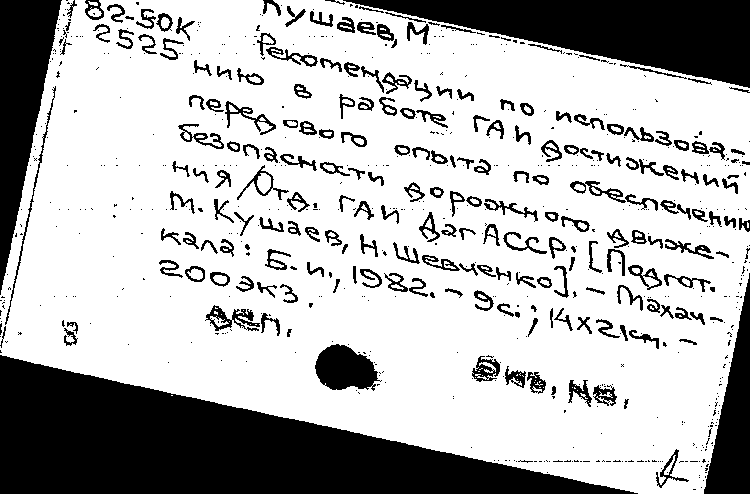 82-50К
2525
Кушаев, М
Рекомендации по использова-
нию в работе ГАИ достижений
передового опыта по обеспечению
безопасности дорожного движе-
ния / Отд. ГАИ ДагАССР; [Подгот.
М. Кушаев, Н. Шевченко]. - Махач-
кала: Б. и., 1982. - 9с.; 14х21см. -
200экз.
Деп.
Экз. №